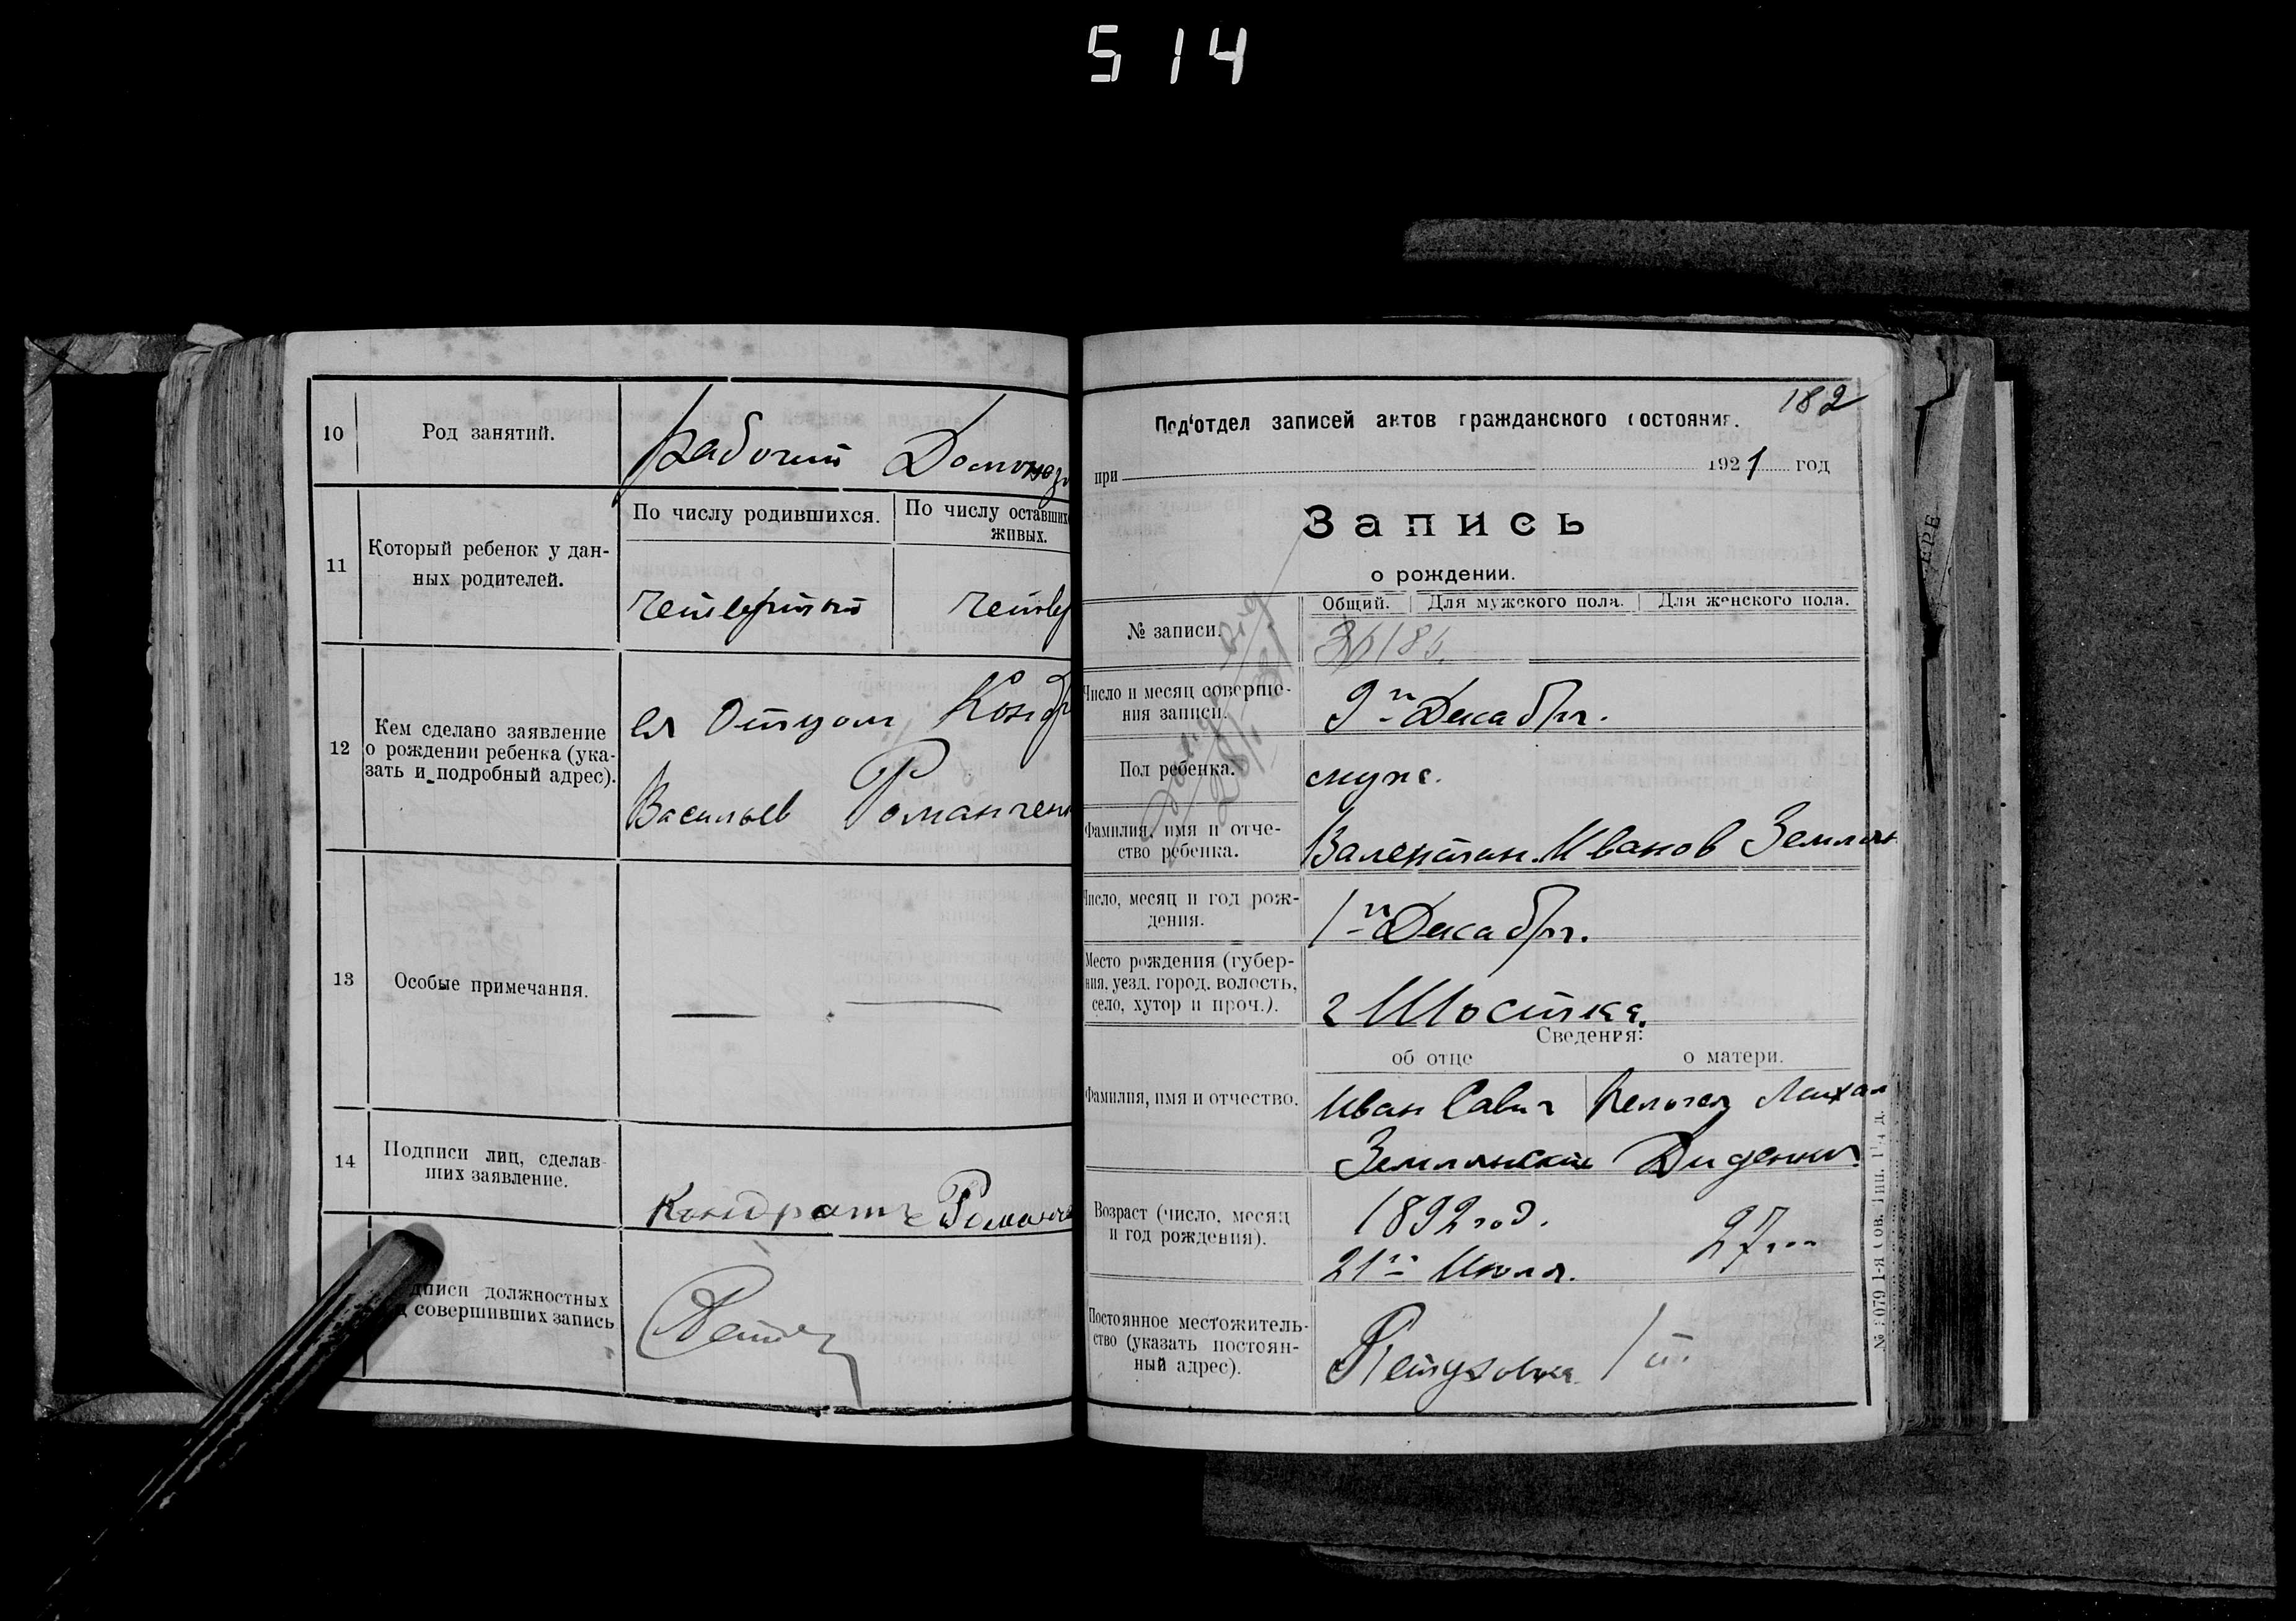 514
10
Род занятий.
рабочий Домохоз
11
Который ребенок у дан-
ных родителей.
По числу родившихся.
По числу оставших
живых.
четвертый
четвер
12
Кем сделано заявление
о рождении ребенка (ука-
зать и подробный адрес).
ея Отцом Кондр
Васильев Романчен
13
Особые примечания.
14
Подписи лиц, сделав-
ших заявление.
Кондрат Романче
дписи должностных
совершивших запись
182
Под'отдел записей актов гражданского состояния.
при 1921 год
Запись
о рождении.
№ записи.
Общий. Для мужского пола. Для женского пола.
Число и месяц соверше-
ния записи.
9го Декабря.
Пол ребенка.
муже.
Фамилия, имя и отче-
ство ребенка.
Валентин Иванов Землян
Число, месяц и год рож-
дения.
1го Декабря.
Место рождения (губер-
ния, уезд, город, волость,
село, хутор и проч.).
г Шостка.
Сведения:
об отце
о матери.
Фамилия, имя и отчество.
Иван Савич
Землянский
Михал
Диденко
Возраст (число, месяц
и год рождения).
1892 год.
21го Июля.
27
Постоянное местожитель-
ство (указать постоян-
ный адрес).
Петуховка